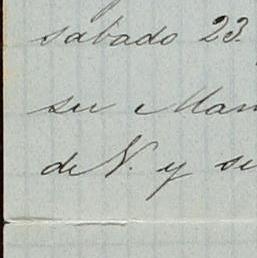 sabado 23.
su Mam
de N. y se